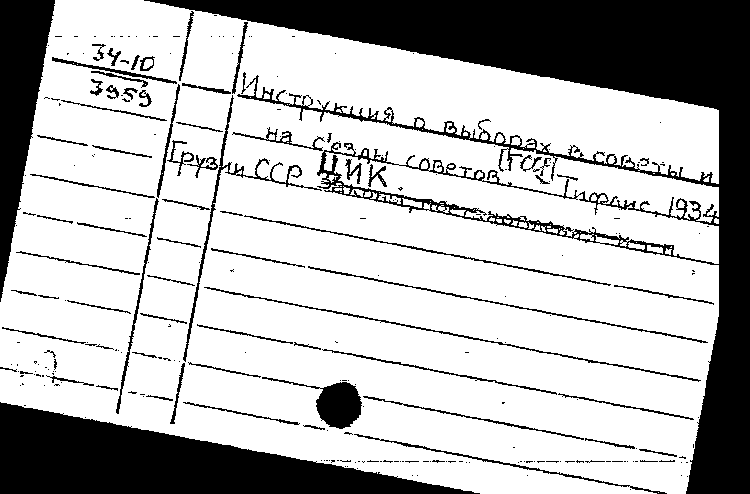 34-10
3959
Инструкция о выборах в советы и
на с'езды советов. Тифлис, 1934
Грузии ССР ЦИК.
Законы, постановления и т.п.